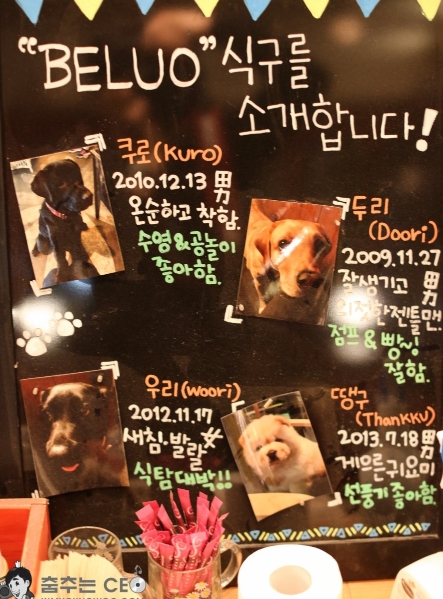 "BELUO" 식구를
소개합니다!
쿠로(Kuro)
2010.12.13 男
온순하고 착함.
수영&공놀이
좋아함.
두리
(Doori)
2009.11.27
잘생기고 男
젠틀맨.
점프 & 빵~!
잘함.
우리(woori)
2012.11.17
새침·발랄
식탐대박!!
땡구
(Thankku)
2013.7.18 男
게으른귀요미
선풍기좋아함.
춤추는 CEO